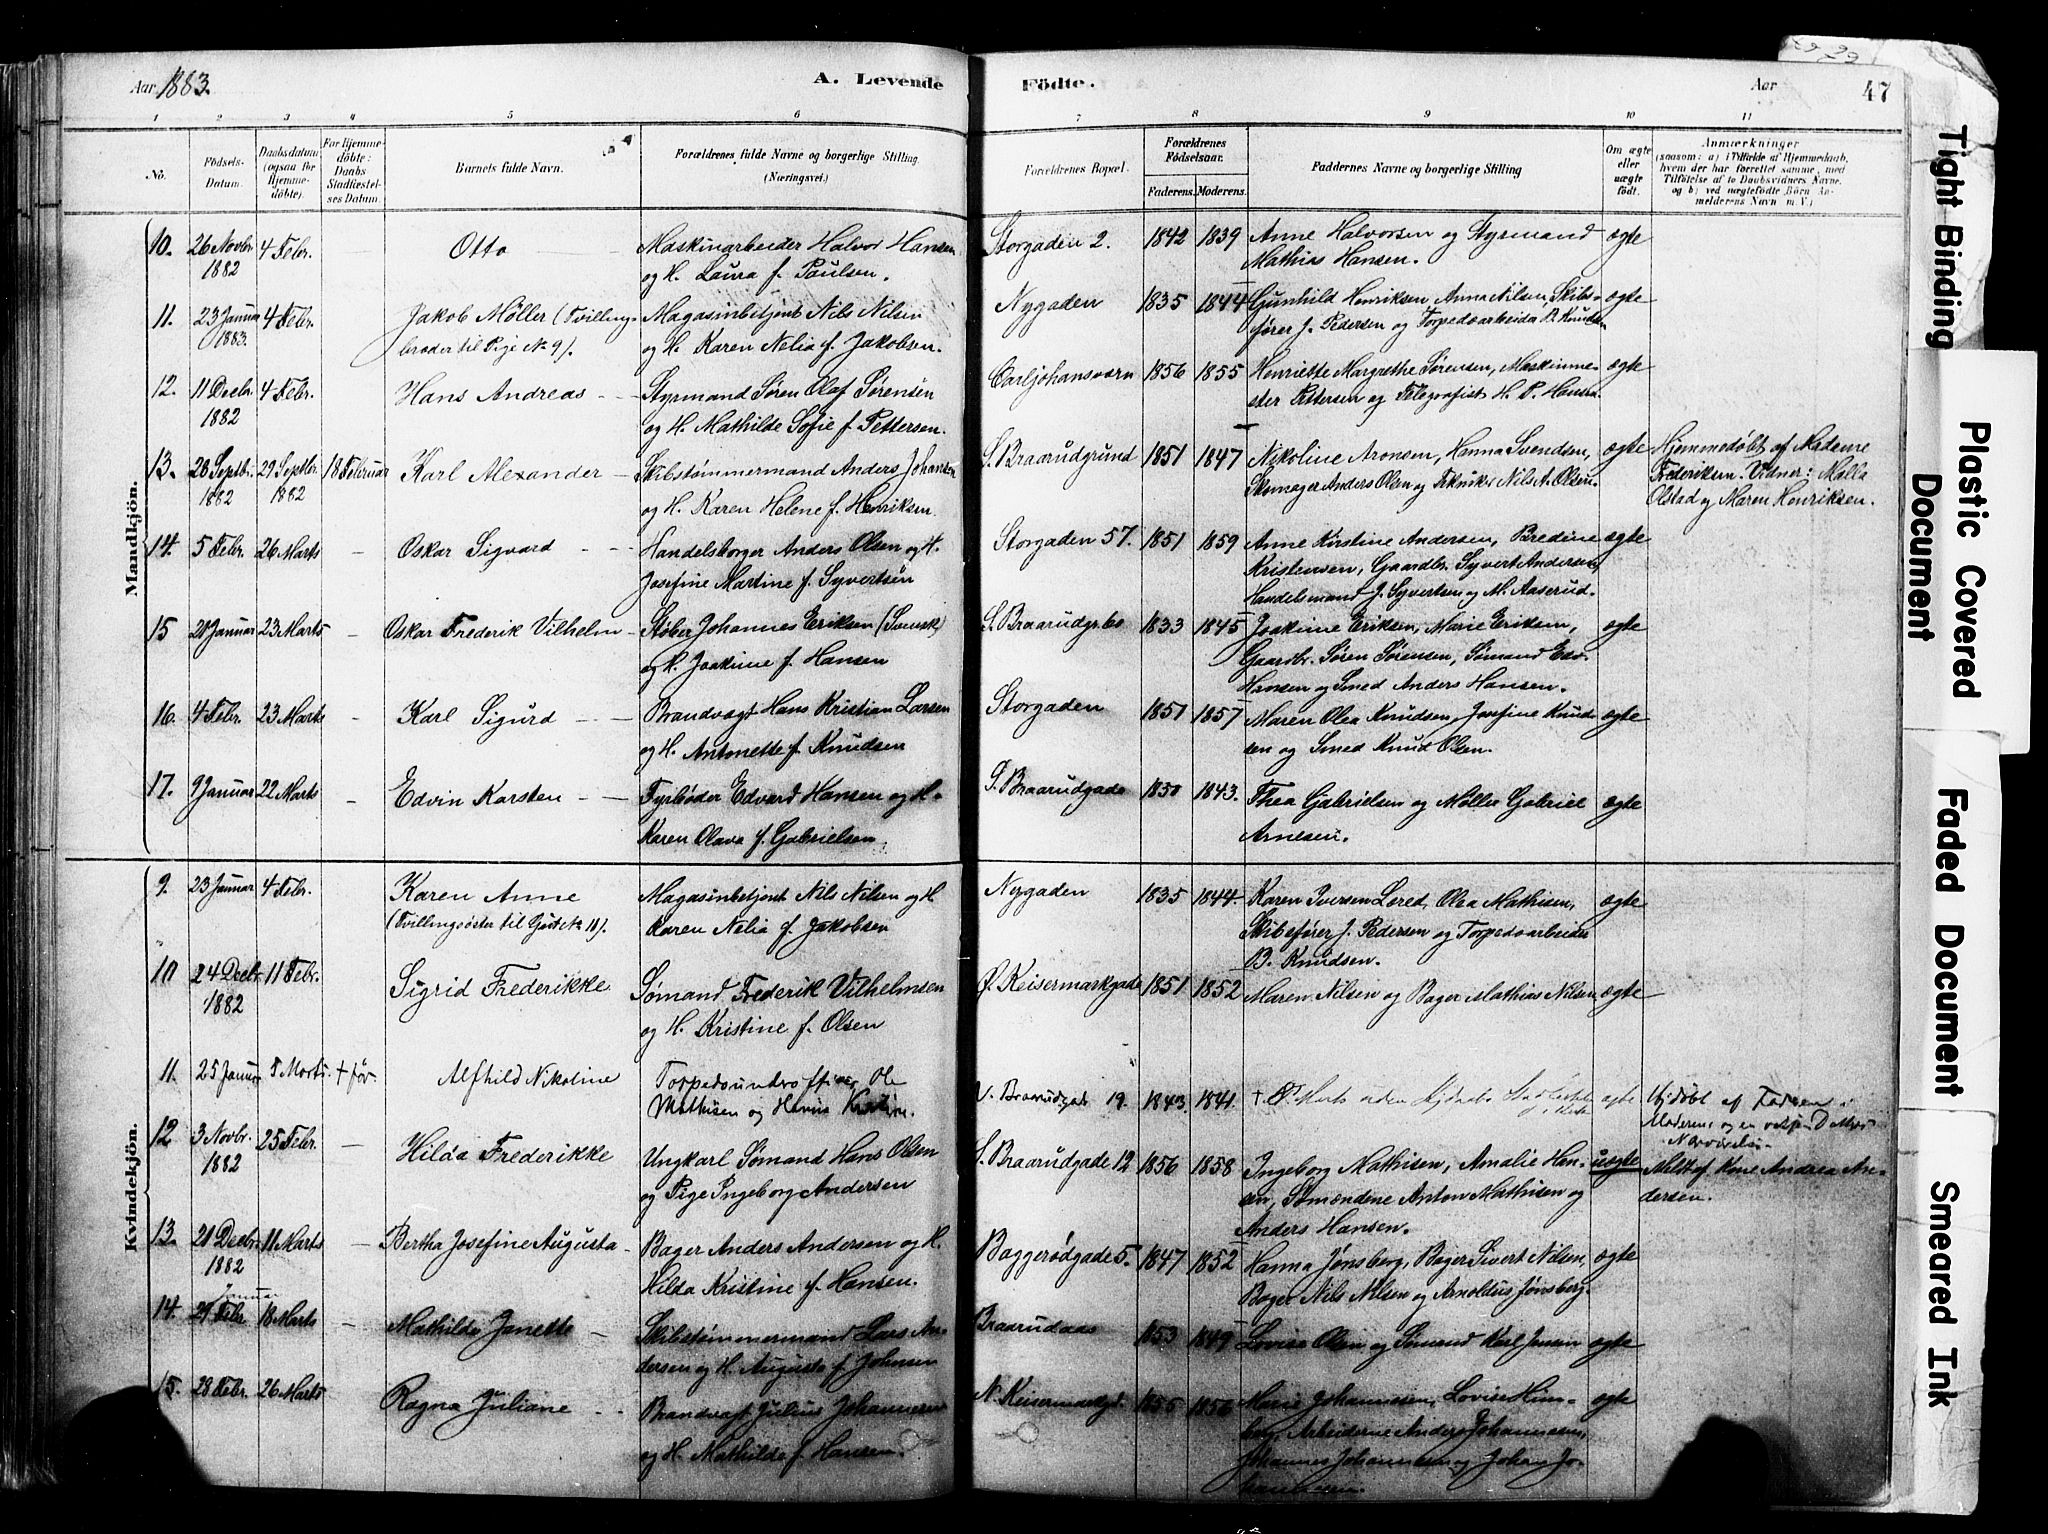 Aar 1883.
A. Levende
Födte.
Aar
47
1 2 3 4 5 6 7 8 9 10 11
No.
Födsels-
Datum.
Daabsdatum
(ogsaa for
Hjemme-
döbte).
For Hjemme-
döbte:
Daabs
Stadfæstel-
ses Datum.
Barnets fulde Navn.
Forældrenes fulde Navne og borgerlige Stilling.
(Næringsvei.)
Forældrenes Bopæl.
Forældrenes
Födselsaar.
Faderens. Moderens.
Faddernes Navne og borgerlige Stilling
Om ægte
eller
uægte
födt.
Anmærkninger
(saasom: a) i Tilfælde af Hjemmedaab,
hvem der har forrettet samme, med
Tilföielse af to Daabsvidners Navne,
og b) ved uægtefödte Börn An-
melderens Navn m. V.)
Mandkjön.
10. 26 Novbr. 4 Febr. Otto Maskinarbeider Halvor Hansen Storgaden 2. 1842 1839 Anne Halvorsen og Styrmand ægte
1882 og H. Laura f. Paulsen. Mathias Hansen.
11. 23 Januar 4 Febr. Jakob Möller (Tvilling- Magasinbetjent Nils Nilsen Nygaden 1835 1844 Gunhild Henriksen, Anna Nilsen, Skibs- ægte
1883. broder til Pige No 9). og H. Karen Nelia f. Jakobsen. fører J. Pedersen og Torpedoarbeider B. Knudsen
12. 11 Decbr. 4 Febr. Hans Andreas Styrmand Søren Olaf Sørensen Carljohansværn 1856 1855 Henriette Margrethe Sørensen, Maskinme- ægte
1882 og H. Mathilde Sofie f. Pettersen. ster Pettersen og Telegrafist H. P. Hansen.
13. 28 Septbr. 29 Septbr. 18 Februar Karl Alexander Skibstømmermand Anders Johansen S. Braarudgrund 1851 1847 Nikoline Aronsen, Hanna Svendsen, ægte Hjemmedøbt af Madame
1882 1882 og H. Karen Helene f. Henriksen. Skomager Anders Olsen og Tekniker Nils A. Olsen. Frederiksen. Vidner: Malla
Olstad og Maren Henriksen.
14. 5 Febr. 26 Marts Oskar Sigvard Handelsborger Anders Olsen og H. Storgaden 57. 1851 1859 Anne Kirstine Andersen, Bredine ægte
Josefine Martine f. Syvertsen Kristensen, Gaardbr. Syvert Andersen,
Handelsmand J. Syvertsen og M. Aaserud.
15 20 Januar 23 Marts Oskar Frederik Vilhelm Støber Johannes Eriksen (Svensk) S. Braarudgr. 1833 1845 Joakime Eriksen, Marie Eriksen, ægte
og H. Joakime f. Hansen Gaardbr. Søren Sørensen, Sømand Edv.
Hansen og Smed Anders Hansen.
16. 4 Febr. 23 Marts Karl Sigurd Brandvagt Hans Kristian Larsen Storgaden 1851 1857 Maren Olea Knudsen, Josefine Knud- ægte
og H. Antonette f. Knudsen sen og Smed Knud Olsen.
17. 9 Januar 22 Marts Edvin Karsten Fyrbøder Edvard Hansen og H. S. Braarudgade 1850 1843. Thea Gabrielsen og Møller Gabriel ægte
Karen Olava f. Gabrielsen. Arnesen.
Kvindekjön.
9. 23 Januar 4 Febr. Karen Anne Magasinbetjent Nils Nilsen og H Nygaden 1835 1844. Karen Iversen Lered, Olea Mathisen, ægte
(Tvillingsøster til Gut No 11). Karen Nelia f. Jakobsen Skibsfører J. Pedersen og Torpedoarbeider
B. Knudsen.
10 24 Decbr. 11 Febr. Sigrid Frederikke Sømand Frederik Vilhelmsen Ø. Keisermarkgade 1851 1852 Maren Nilsen og Bager Mathias Nilsen ægte
1882 og H. Kristine f. Olsen
11. 25 Januar 8 Marts. + før Alfhild Nikoline Torpedounderofficer Ole V. Braarudgade 19. 1843. 1841. ægte Hjdøbt af Faderen i
Mathisen og Moderens og en
Nærværelse
12 3 Novbr. 25 Febr. Hilda Frederikke Ungkarl Sømand Hans Olsen S. Braarudgade 12 1856 1858 Ingeborg Mathisen, Amalie Han- uægte Meldt af Kone Andrea An-
1882 og Pige Ingeborg Andersen sen, Sømændene Anton Mathisen og dersen.
Anders Hansen.
13. 20 Decbr. 11 Marts Bertha Josefine Augusta Bager Anders Andersen og H. Baggerødgade 5. 1847 1852 Hanna Jønsberg, Bager Sivert Nilsen, ægte
1882 Hilda Kristine f. Hansen. Bager Nils Nilsen og Arnoldus Jønsberg.
Januar
14. 29 Febr. 18 Marts Mathilde Janette Skibstømmermand Lars An- Braarudaas 1853 1849 Lovise Olsen og Sømand Karl Jensen ægte
dersen og H. Augusta f. Johnsen
15. 28 Febr. 26 Marts Ragna Juliane Brandvagt Julius Johannesen N. Keisermarkgd. 1855 1856 Marie Johannesen, Lovise Him- ægte
og H. Mathilde f. Hansen. berg, Arbeiderne Anders Johannesen,
Johannes Johannesen og Johan Jo-
hannesen.
Tight Binding
Plastic Covered
Document
Faded Document
Smeared Ink